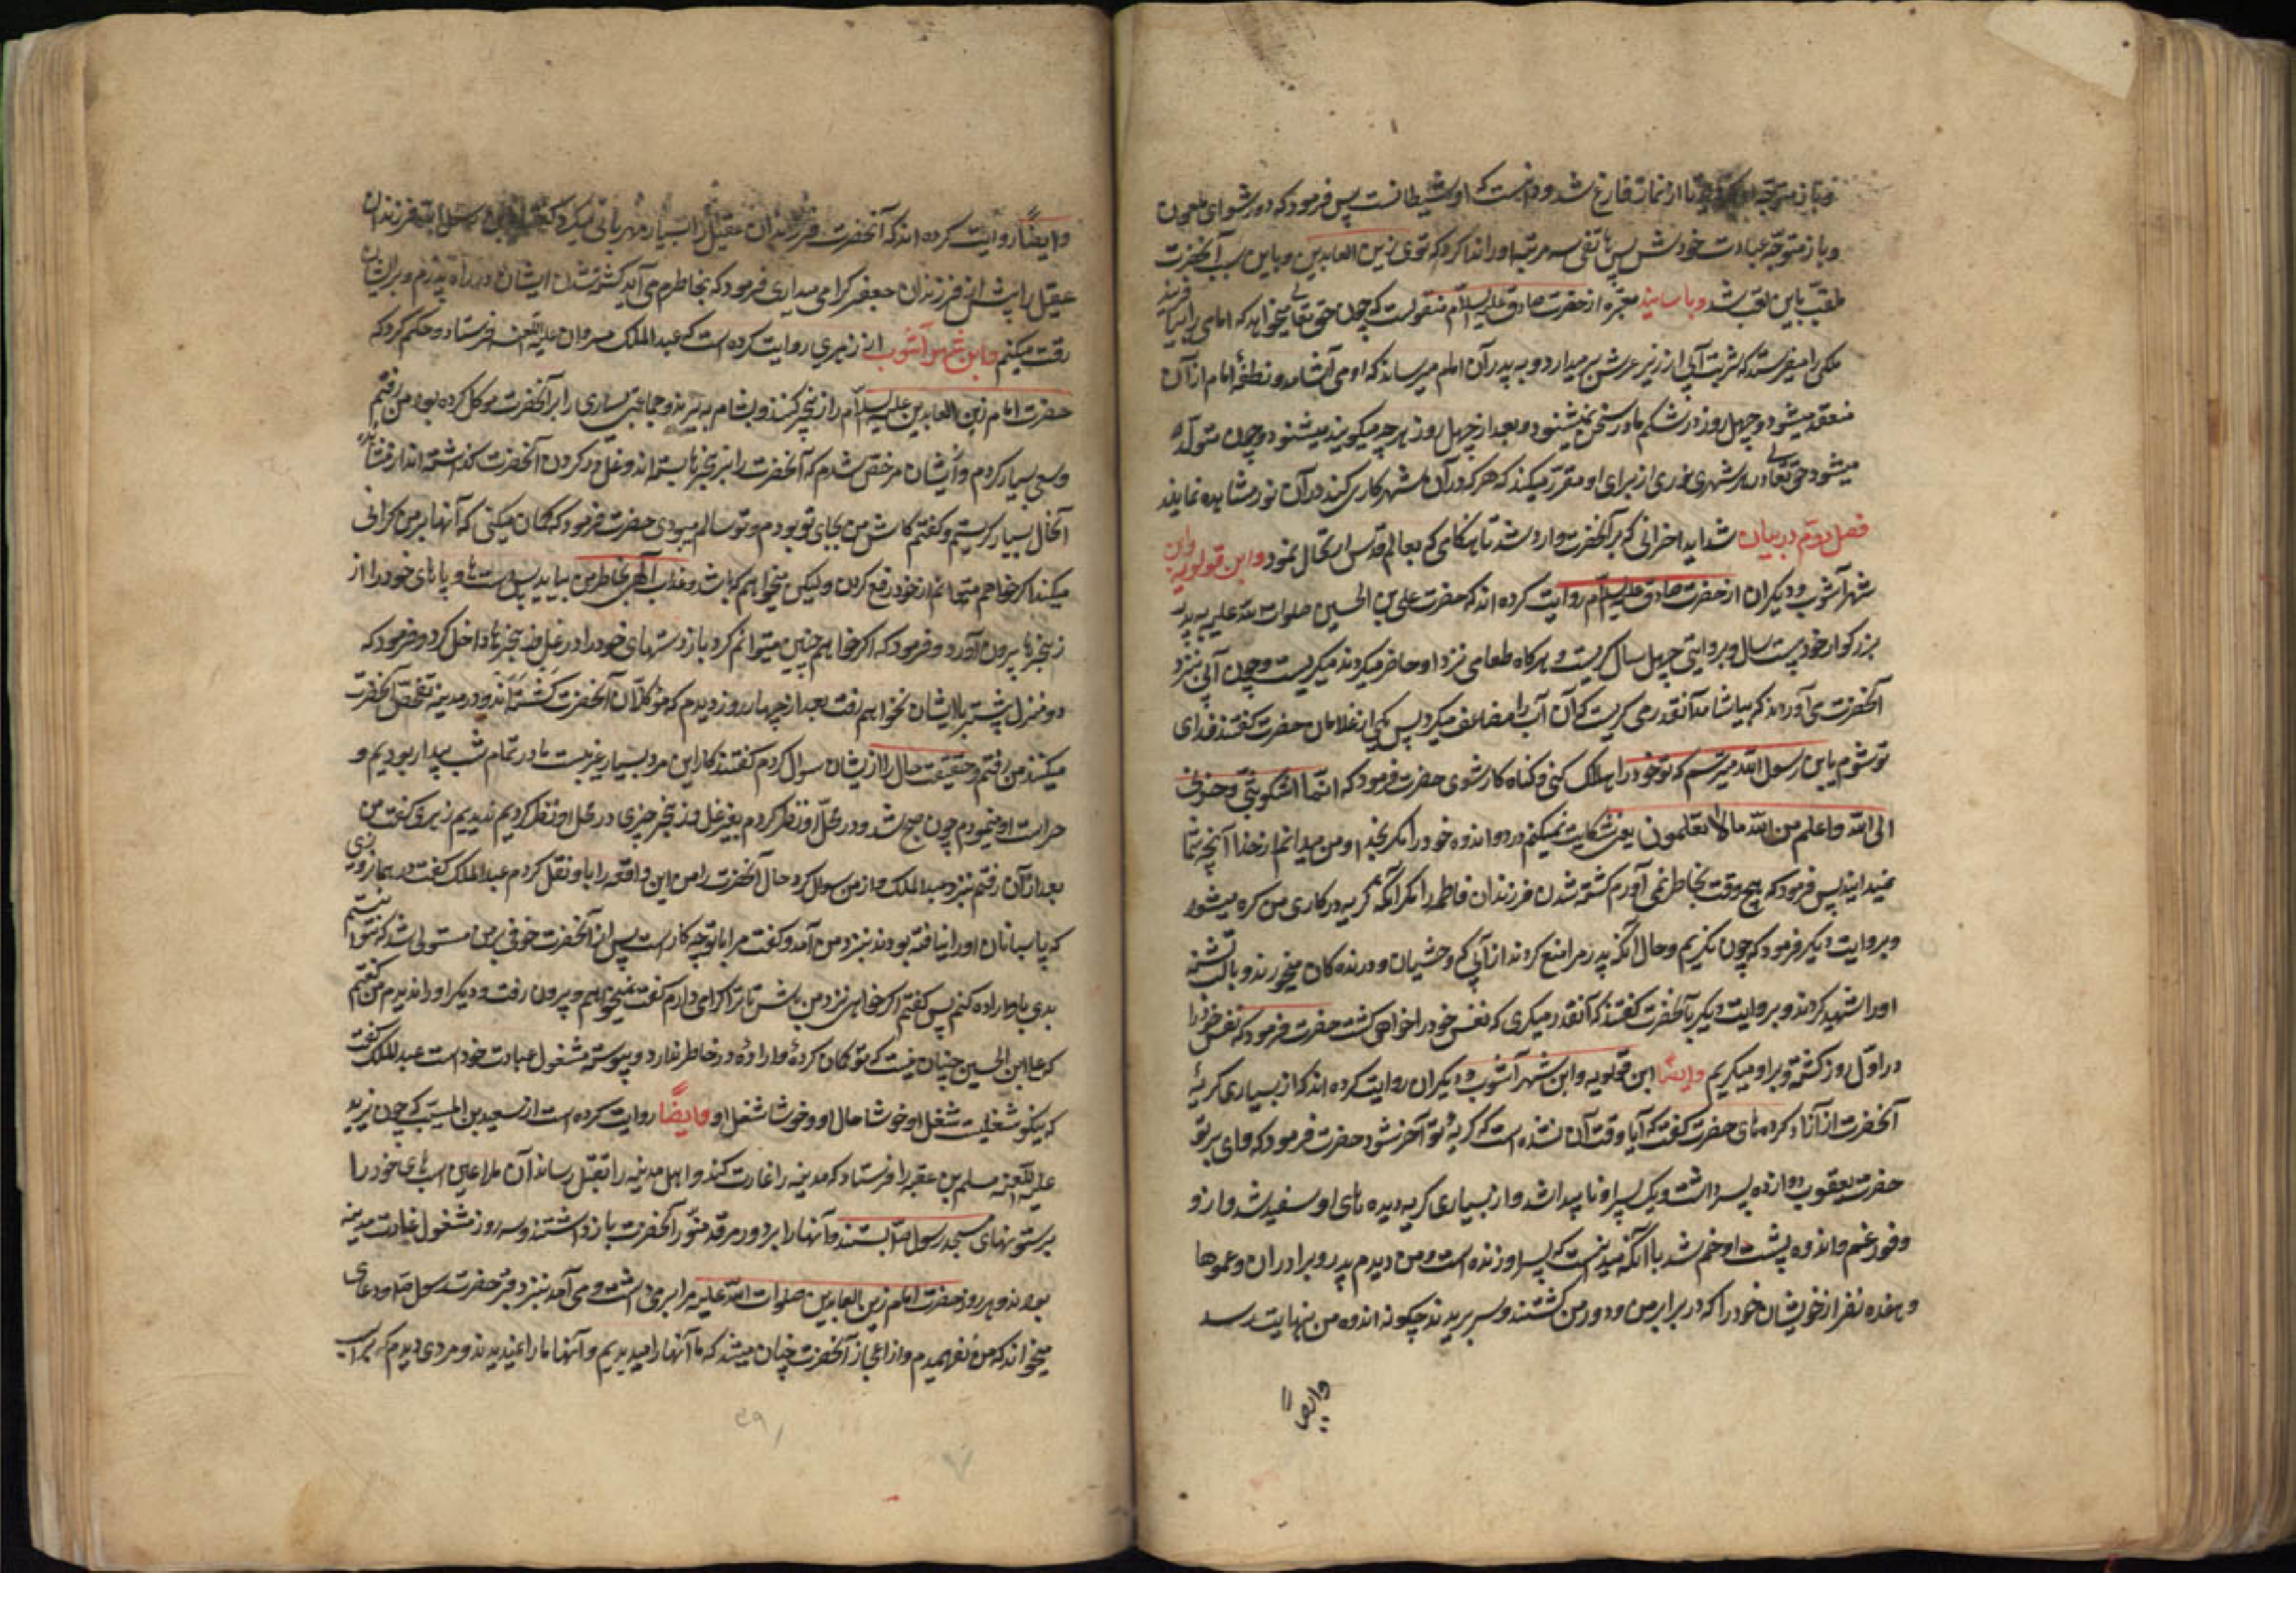 از نماز فارغ شد و دانست که او شیطانست پس فرمود که دور شو ای ملعون
و باز متوجه عبادت خود شد پس هاتفی سه مرتبه او را ندا کرد که توی زین العابدین و باین سبب آنحضرت
ملقب باین لقب شد و باسانید معتبره از حضرت صادق علیه السلام منقولست که چون حق تعالی میخواهد که امامی را بیافریند
ملکی را میفرستد که شربت آبی از زیر عرش بر میدارد و به پدر آن امام میرساند که او می آشامد و نطفهٔ امام از آن
منعقد میشود و چهل روز در شکم مادر سخن نمیشنود و بعد از چهل روز هر چه میگویند میشنود و چون متولد
میشود حق تعالی در هر شهری نوری از برای او مقرر میکند که هر که در آن شهر کار کند در آن نور مشاهده نماید
فصل دوم در بیان شداید احزانی که بر آنحضرت وارد شد تا هنگامی که بعالم قدس ارتحال نمود و ابن قولویه و ابن
شهر آشوب و دیگران از حضرت صادق علیه السلام روایت کرده اند که حضرت علی بن الحسین صلوات الله علیه بر پدر
بزرگوار خود بیست سال و بروایتی چهل سال گریست و هرگاه طعامی نزد او حاضر میکردند میگریست و چون آبی بنزد
آنحضرت می آوردند که بیاشامد آنقدر می گریست که آن آب را مضاعف میکرد پس یکی از غلامان حضرت گفتند فدای
تو شوم یابن رسول الله میترسم که تو خود را هلاک کنی و گناه کار شوی حضرت فرمود که انما اشکو بثی و حزنی
الی الله و اعلم من الله ما لا تعلمون یعنی شکایت نمیکنم درد و اندوه خود را مگر بخدا و من میدانم از خدا آنچه شما
نمیدانید پس فرمود که هیچ وقت بخاطر نمی آورم کشته شدن فرزندان فاطمه را مگر آنکه گریه در گلوی من گره میشود
و بروایت دیگر فرمود که چون نگریم و حال آنکه پدر مرا منع کردند از آبی که وحشیان و درنده کان میخورند و بالب تشنه
او را شهید کردند و بروایت دیگر بآنحضرت گفتند که آنقدر میگری که نفس خود را خواهی کشت حضرت فرمود که نفس خود را
در اول روز کشته و بر او میگریم و ایضا ابن قولویه و ابن شهر آشوب و دیگران روایت کرده اند که از بسیاری گریهٔ
آنحضرت از آزاد کرده های حضرت گفت که آیا وقت آن نشده است که گریهٔ تو آخر شود حضرت فرمود که وای بر تو
حضرت یعقوب دوازده پسر داشت و یک پسر او نا پیدا شد و از بسیاری گریه دیده های او سفید شد و از
وفور غم و اندوه پشت او خم شد با آنکه میدانست که پسر او زنده است و من دیدم پدر و برادران و عموها
و هفده نفر از خویشان خود را که در برابر من و دور من کشتند و سر بریدند چگونه اندوه من بنهایت رسد
وایضاً
وایضاً روایت کرده اند که آنحضرت فرزندان عقیل را بسیار مهربانی میکرد گفتند یابن رسول الله فرزندان
عقیل را بیش از فرزندان جعفر گرامی میداری فرمود که بخاطرم می آید کشته شدن ایشان در راه پدرم و بر ایشان
رقت میکنم و ابن شهر آشوب از زهری روایت کرده است که عبدالملک مروان علیه اللعنه فرستاد و حکم کرد که
حضرت امام زین العابدین علیه السلام را زنجیر کنند و بشام به برند و جماعت بسیاری را بر آنحضرت موکل کرده بود من رفتم
و سعی بسیار کردم و از ایشان مرخص شدم که آنحضرت را بزنجیرها بسته اند و غل در گردن آنحضرت گذاشته اند از مشاهده
آنحال بسیار گریستم و گفتم کاش من بجای تو بودم و تو سالم میبودی حضرت فرمود که گمان میکنی که آنها بر من گرانی
میکند اگر خواهم میتوانم از خود رفع کردن ولیکن میخواهم که باشد و عذاب الهی بخاطر من بیاید پس دست و پاهای خود را از
زنجیرها بیرون آورد و فرمود که اگر خواهم چنین میتوانم کرد باز دستهای خود را در غل و زنجیرها داخل کرد و فرمود که
دو منزل بیشتر با ایشان نخواهم رفت بعد از چهار روز دیدم که موکلان آنحضرت گشته اند و در مدینه تفحص آنحضرت
میکنند من رفتم و حقیقت حال را از ایشان سوال کردم گفتند کار این مرد بسیار غریبست ما در تمام شب بیدار بودیم و
حراست او مینمودیم چون صبح شد و در محل او نظر کردم بغیر غل و زنجیر چیزی در محل او نظر کردیم ندیدیم زهری گفت من
بعد از آن رفتم بنزد عبدالملک و از من سوال کرد حال آنحضرت را من این واقعه را باو نقل کردم عبدالملک گفت در همان روزی
که پاسبانان او را نیافته بودند بنزد من آمد و گفت مرا با تو چه کار است پس از آنحضرت خوفی بر من مستولی شد که نتوانستم
بدی باو اراده کنم پس گفتم اگر خواهی نزد من باش تا ترا گرامی دارم گفت نمیخواهم و بیرون رفت و دیگر او را ندیدم من گفتم
که علی ابن الحسین چنان نیست که تو گمان کردهٔ و ارادهٔ در خاطر ندارد و پیوسته مشغول عبادت خود است عبدالملک گفت
که نیکو شغلیست شغل او خوشا حال او و خوشا شغل او و ایضاً روایت کرده است از سعید بن المسیب که چون یزید
علیه اللعنه مسلم بن عقبه را فرستاد که مدینه را غارت کند و اهل مدینه را بقتل رساند آن ملاعین اسبهای خود را
بر ستونهای مسجد رسول الله بستند و آنها را بر دور مرقد منور آنحضرت باز داشتند و سه روز مشغول غارت مدینه
بودند و هر روز حضرت امام زین العابدین صلوات الله علیه مرا بر می داشت و می آمد بنزد قبر حضرت رسول ص و دعای
میخواند که من نفهمیدم و از اعجاز آنحضرت چنان میشد که ما آنها را میدیدیم و آنها ما را نمیدیدند و مردی دیدم که بر اسب